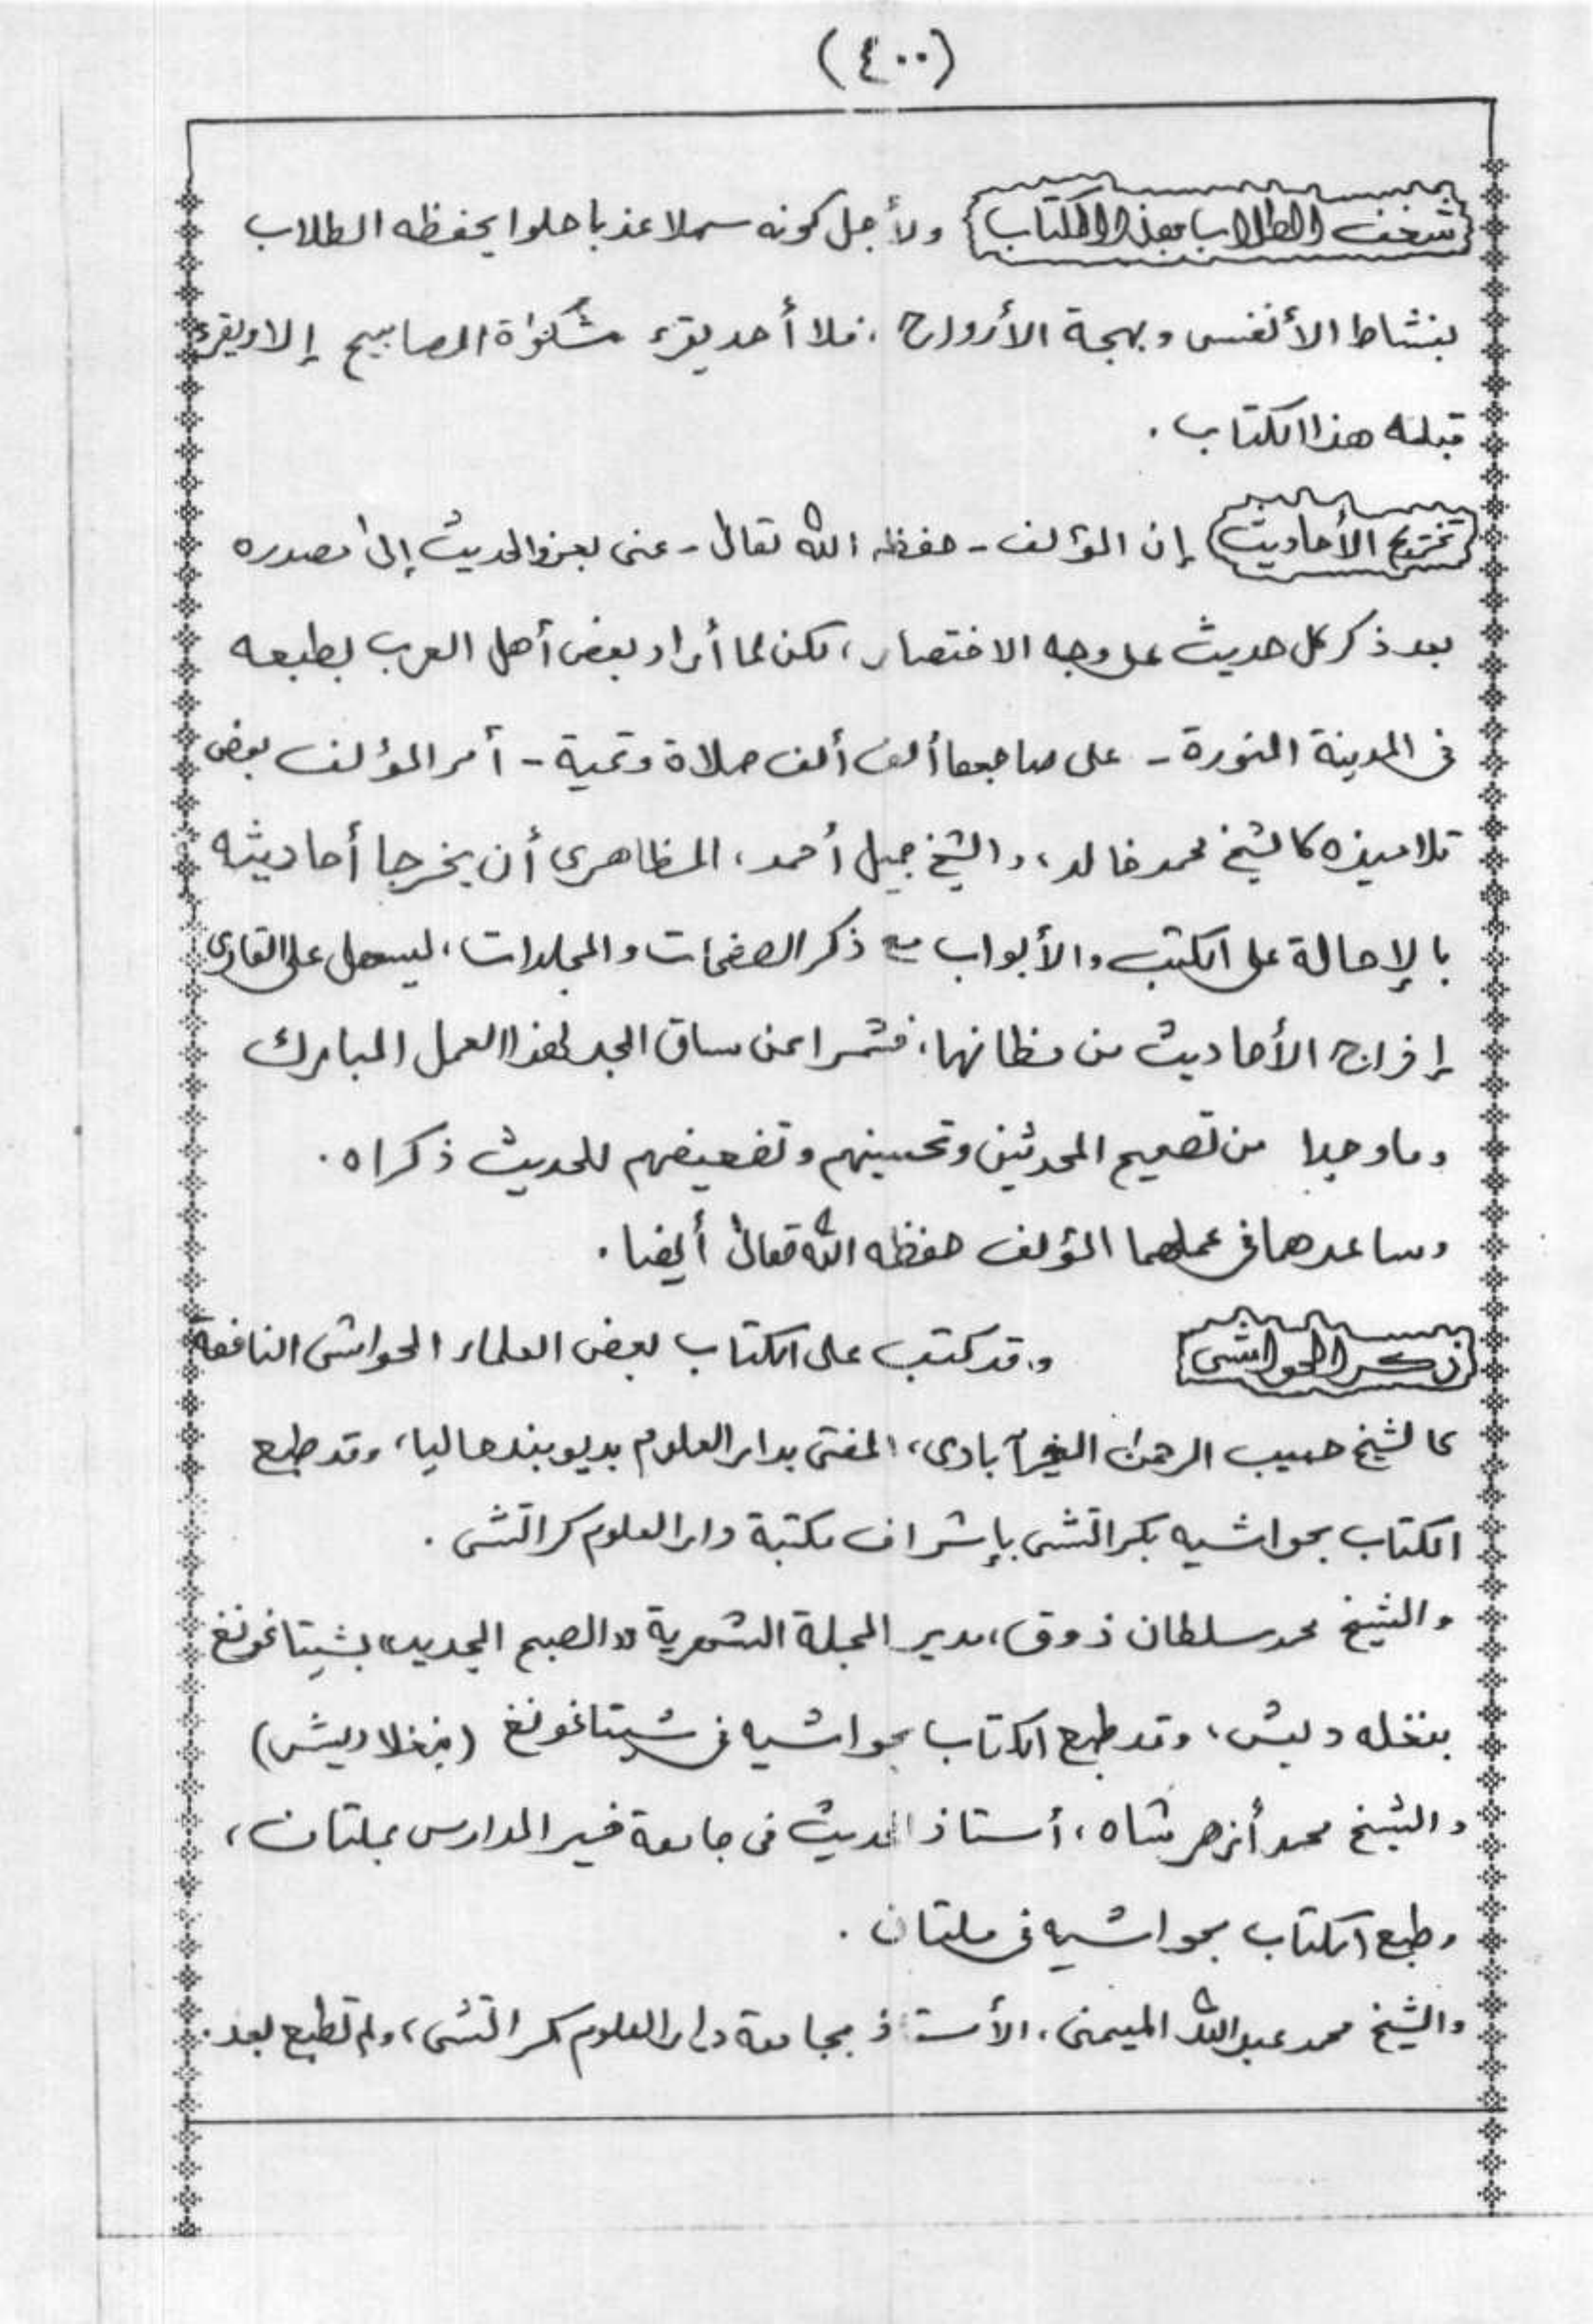 (٤٠٠)
شغف الطلاب بهذا الكتاب ولأجل كونه سهلا عذبا حلوا يحفظه الطلاب
بنشاط الأنفس وبهجة الأرواح، فلا أحد يقرء مشكواة المصابيح إلا ويقرء
قبله هذا الكتاب.
تخريج الأحاديث إن المؤلف - حفظه الله تعالى - عنى بعزو الحديث إلى مصدره
بعد ذكر كل حديث على وجه الاختصار، لكن لما أراد بعض أهل العرب بطبعه
فى المدينة المنورة - على صاحبها ألف ألف صلاة وتحية - أمر المؤلف بعض
تلاميذه كالشيخ محمد خالد، والشيخ جميل أحمد، المظاهرى أن يخرجا أحاديثه
بالإحالة على الكتب والأبواب مع ذكر الصفحات والمجلدات، ليسهل على القارى
إخراج الأحاديث من مظانها، فشمرا عن ساق الجد لهذا العمل المبارك
وما وجدا من تصحيح المحدثين وتحسينهم وتضعيفهم للحديث ذكراه.
وساعدهما فى عملهما المؤلف حفظه الله تعالىٰ أيضا.
ذكر الحواشى وقد كتب على الكتاب بعض العلماء الحواشى النافعة
كالشيخ حبيب الرحمن الخيرآبادى، المفتى بدار العلوم بديوبند حاليا، وقد طبع
الكتاب بحواشيه بكراتشى بإشراف مكتبة دار العلوم كراتشى.
والشيخ محمد سلطان ذوق، مدير المجلة الشهرية «الصبح الجديد» بشيتاغونغ
بنغله ديش، وقد طبع الكتاب بحواشيه فى شيتاغونغ (بنغلاديش)
والشيخ محمد أزهر شاه، أستاذ الحديث فى جامعة خير المدارس بملتان،
وطبع الكتاب بحواشيه فى ملتان.
والشيخ محمد عبد الله الميمنى، الأستاذ بجامعة دار العلوم كراتشى، ولم تطبع بعد.